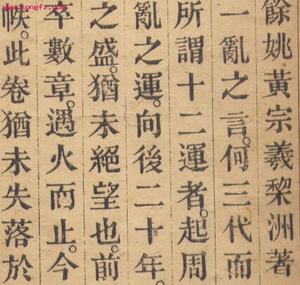 餘姚黃宗羲棃洲著
一亂之言。何三代而
所謂十二運者。起周
亂之運。向後二十年。
之盛。猶未絕望也。前
卒數章。遇火而止。今
帙。此卷猶未失落於